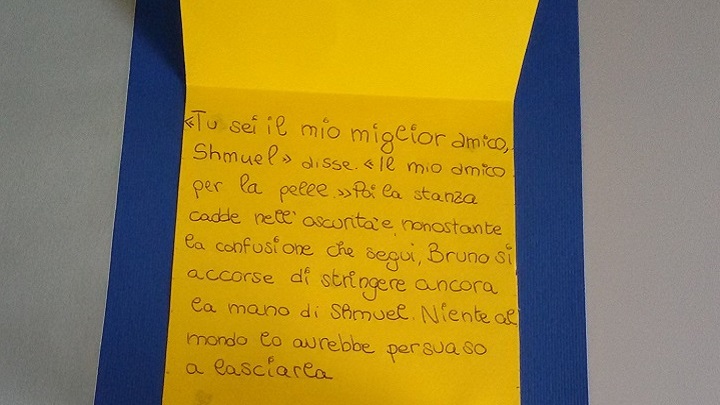 «Tu sei il mio miglior amico,
Shmuel» disse. «Il mio amico
per la pelle.» Poi la stanza
cadde nell'oscurità e, nonostante
la confusione che seguì, Bruno si
accorse di stringere ancora
la mano di Shmuel. Niente al
mondo lo avrebbe persuaso
a lasciarla